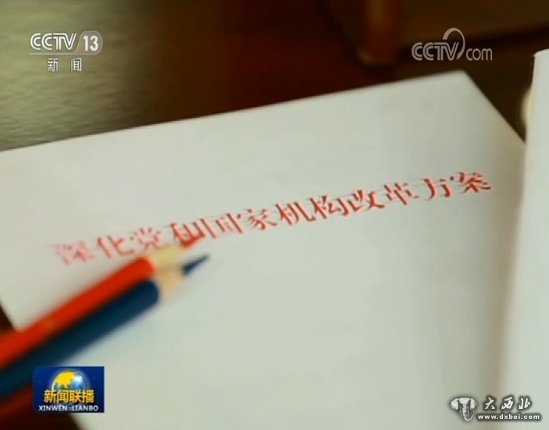 CCTV 13
新闻
CCTV.com
深化党和国家机构改革方案
新闻联播
XINWEN LIANBO
大西北
www.dxbei.com